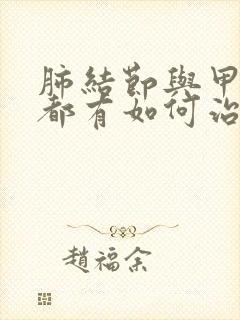 肺結節與甲
都有如何治
趙福余